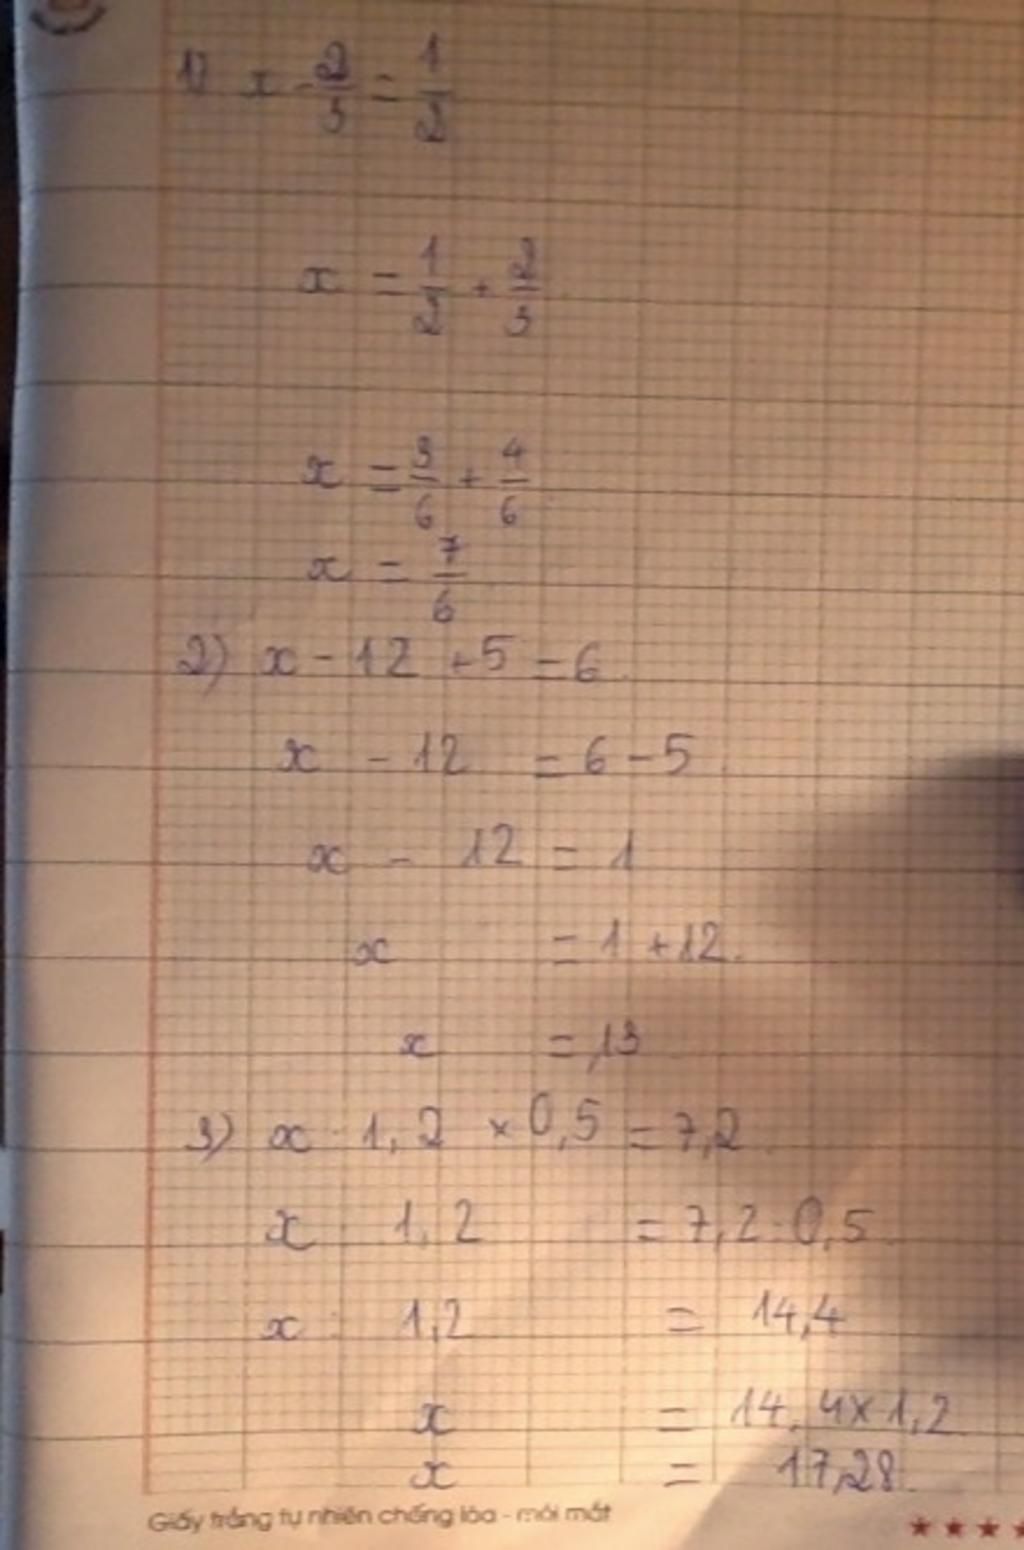 1) x - 2/3 = 1/2
x = 1/2 + 2/3
x = 3/6 + 4/6
x = 7/6
2) x - 12 + 5 = 6
x - 12 = 6 - 5
x - 12 = 1
x = 1 + 12.
x = 13
3) x : 1,2 × 0,5 = 7,2
x : 1,2 = 7,2 : 0,5
x : 1,2 = 14,4
x = 14,4 × 1,2
x = 17,28.
Giấy trắng tự nhiên chống lóa - mỏi mắt